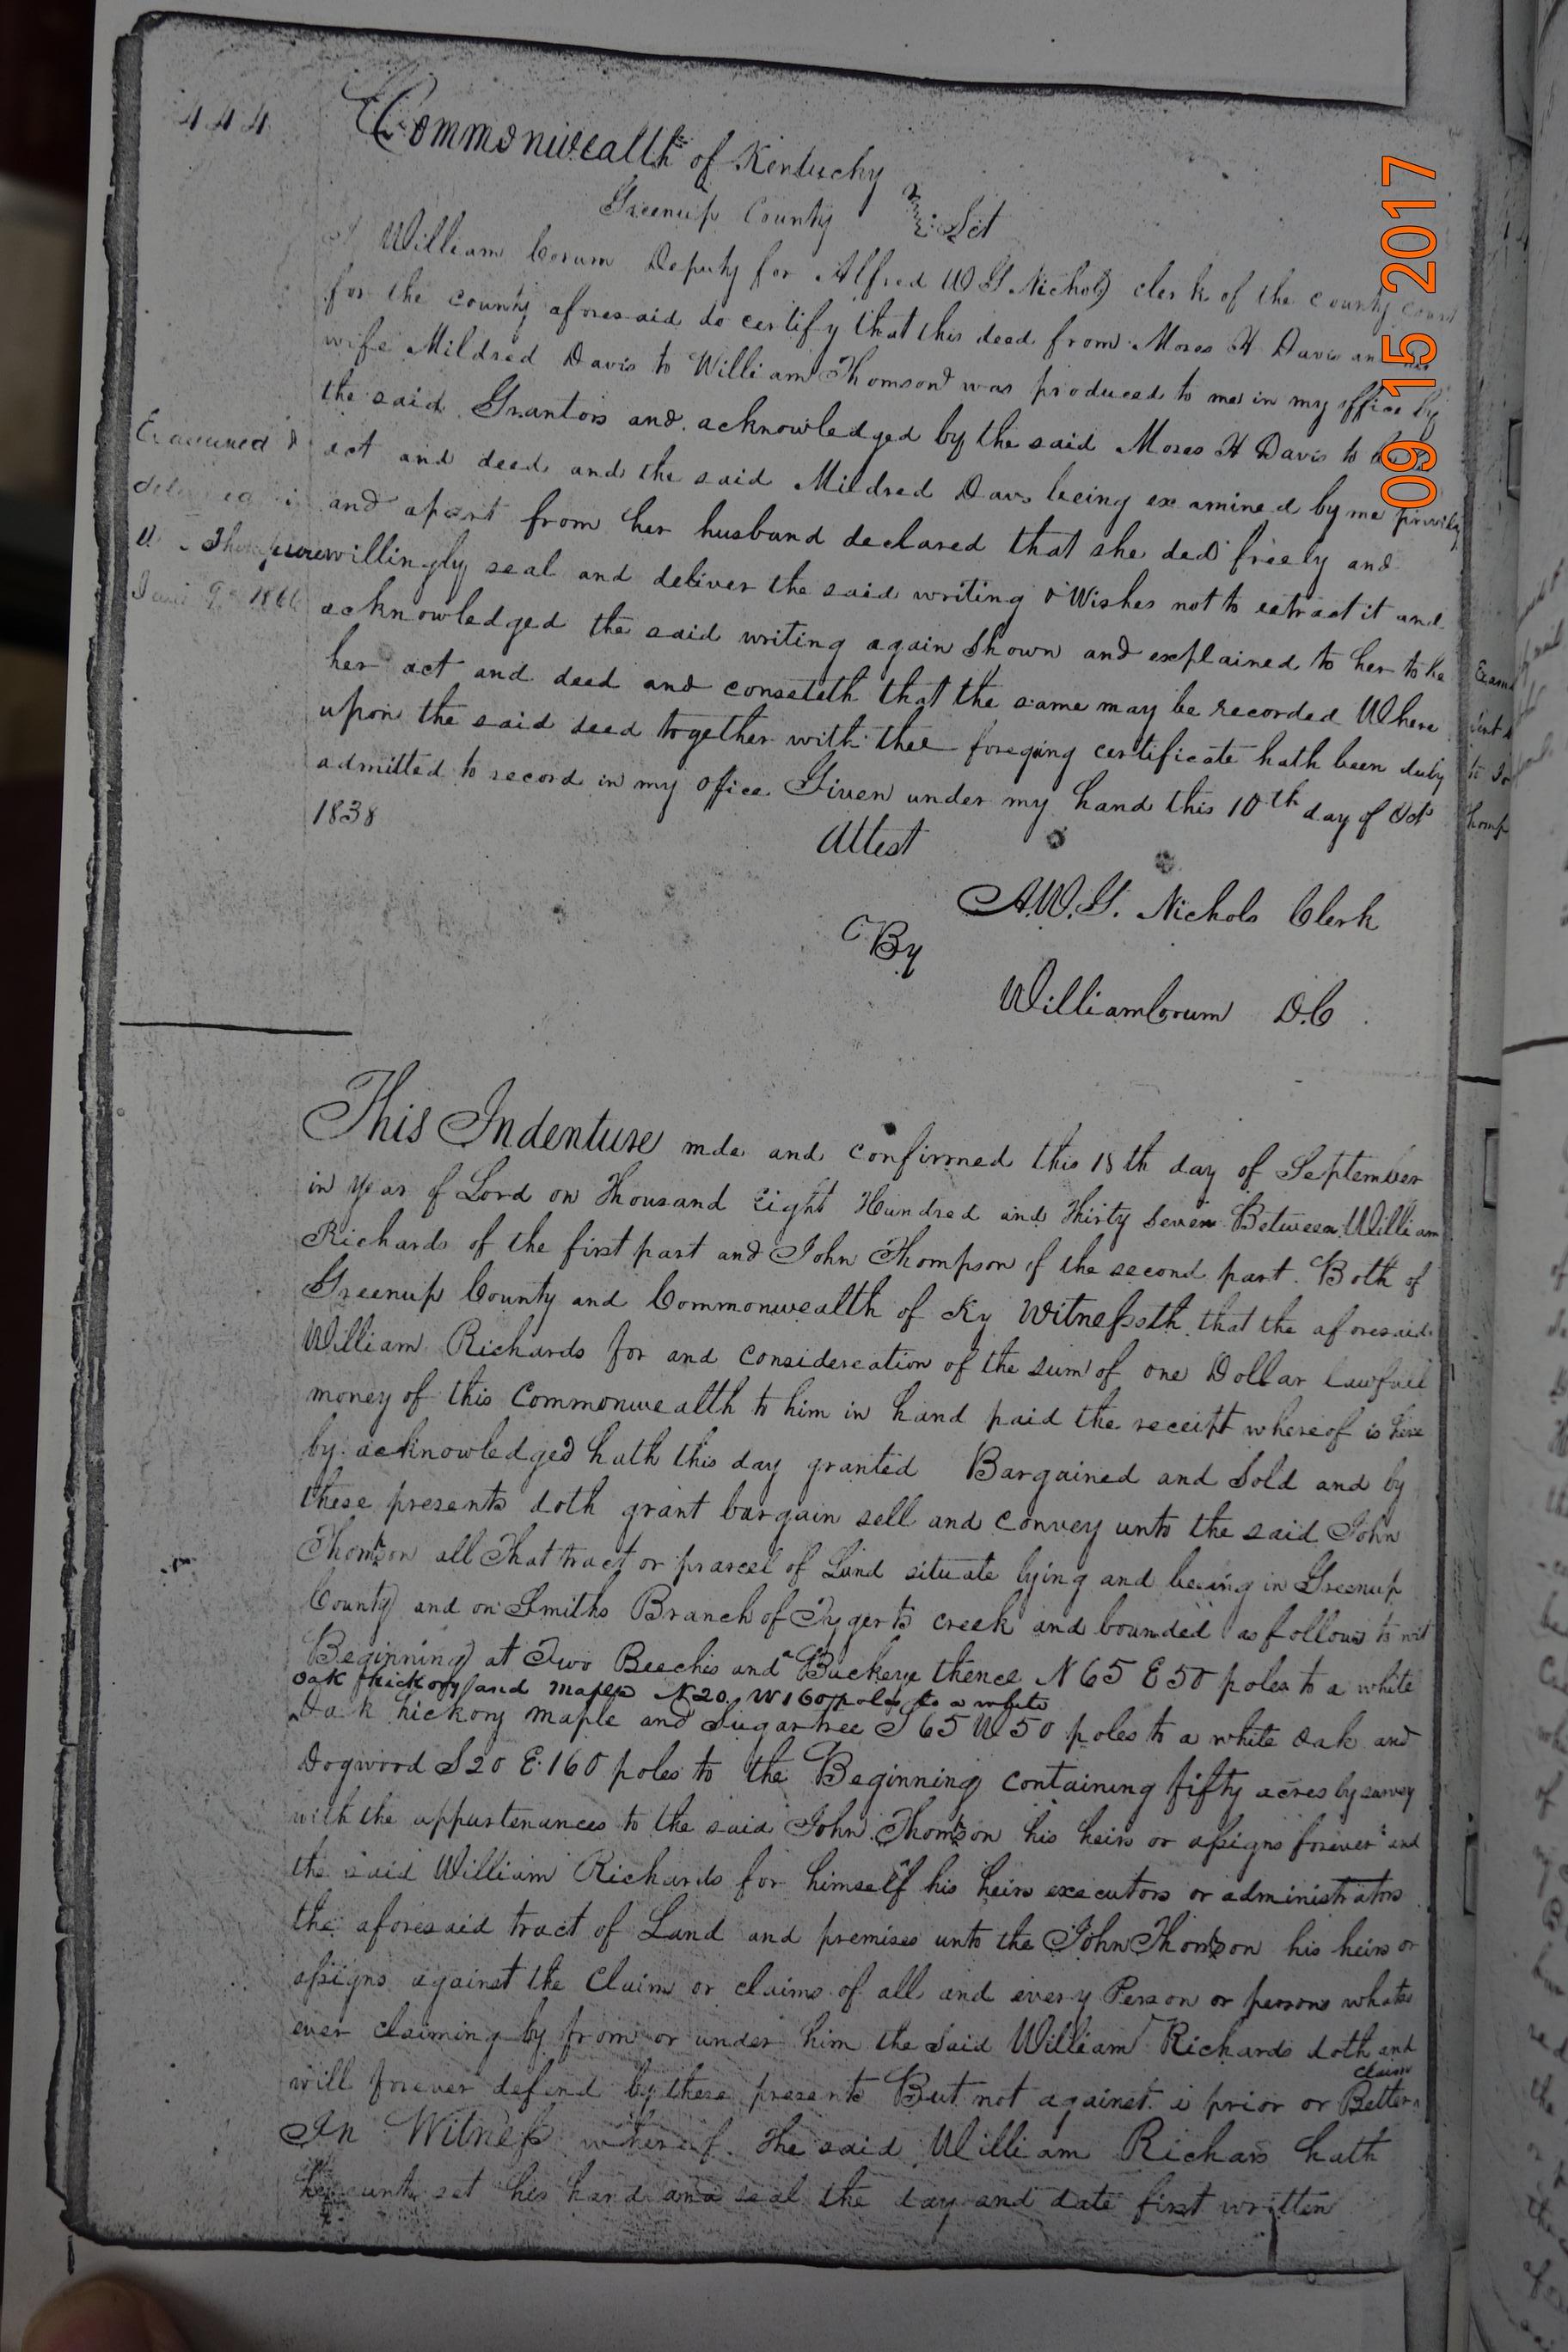 444
Commonwealth of Kentucky
Greenup County Sct
I William Corum Deputy for Alfred W G Nichols clerk of the county court
for the county aforesaid do certify that this deed from Moses H Davis an
wife Mildred Davis to William Thomson was produced to me in my office by
the said Grantors and acknowledged by the said Moses H Davis to be
act and deed and the said Mildred Davs being examined by me privily
and apart from her husband declared that she ded freely and
willingly seal and deliver the said writing & Wishes not to retract it and
acknowledged the said writing again Shown and explained to her to be
her act and deed and conseteth that the same may be recorded Where
upon the said deed together with thee foregoing certificate hath been duly
admitted to record in my office Given under my hand this 10th day of Oct
1838
Attest
A.W.G. Nichols Clerk
By
William Corum D.C
Examined &
1866
This Indenture mde and confirmed this 18th day of September
in year of Lord on Thousand Eight Hundred and Thirty Seven Between William
Richards of the first part and John Thompson of the second part. Both of
Greenup County and Commonwealth of Ky Witnesseth that the aforesaid
William Richards for and considereation of the sum of one Dollar lawfull
money of this Commonwealth to him in hand paid the receipt whereof is here
by acknowledged hath this day granted Bargained and Sold and by
these presents doth grant bargain sell and convey unto the said John
Thomson all That tract or prarcel of Land situate lying and being in Greenup
County and on Smiths Branch of Tygerts creek and bounded as follows to wit
Beginning at Two Beeches and a Buckeye thence N 65 E 50 poles to a white
oak hickory and maple N20 W160 poles to a white
Oak hickory maple and Sugartree S 65 W 50 poles to a white Oak and
Dogwood S20 E.160 poles to the Beginning containing fifty acres by survey
with the appurtenances to the said John Thomson his heirs or assigns forever and
the said William Richards for himself his heirs executors or administrators
the aforesaid tract of Land and premises unto the John Thomson his heirs or
assigns against the Claim or claims of all and every Person or persons whats
ever claiming by from or under him the Said William Richards doth and
will forever defend by these presents But not against a prior or Better
claim
In Witness whereof The said William Richars hath
hereunto set his hand and seal the day and date first written
09 15 2017